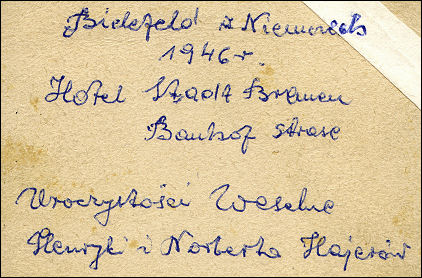 Bielefeld z Niemczech
1946 r.
Hotel Stadt Bremen
Banhof strase
Uroczystości Weselne
Henryki i Norberta Hajerów